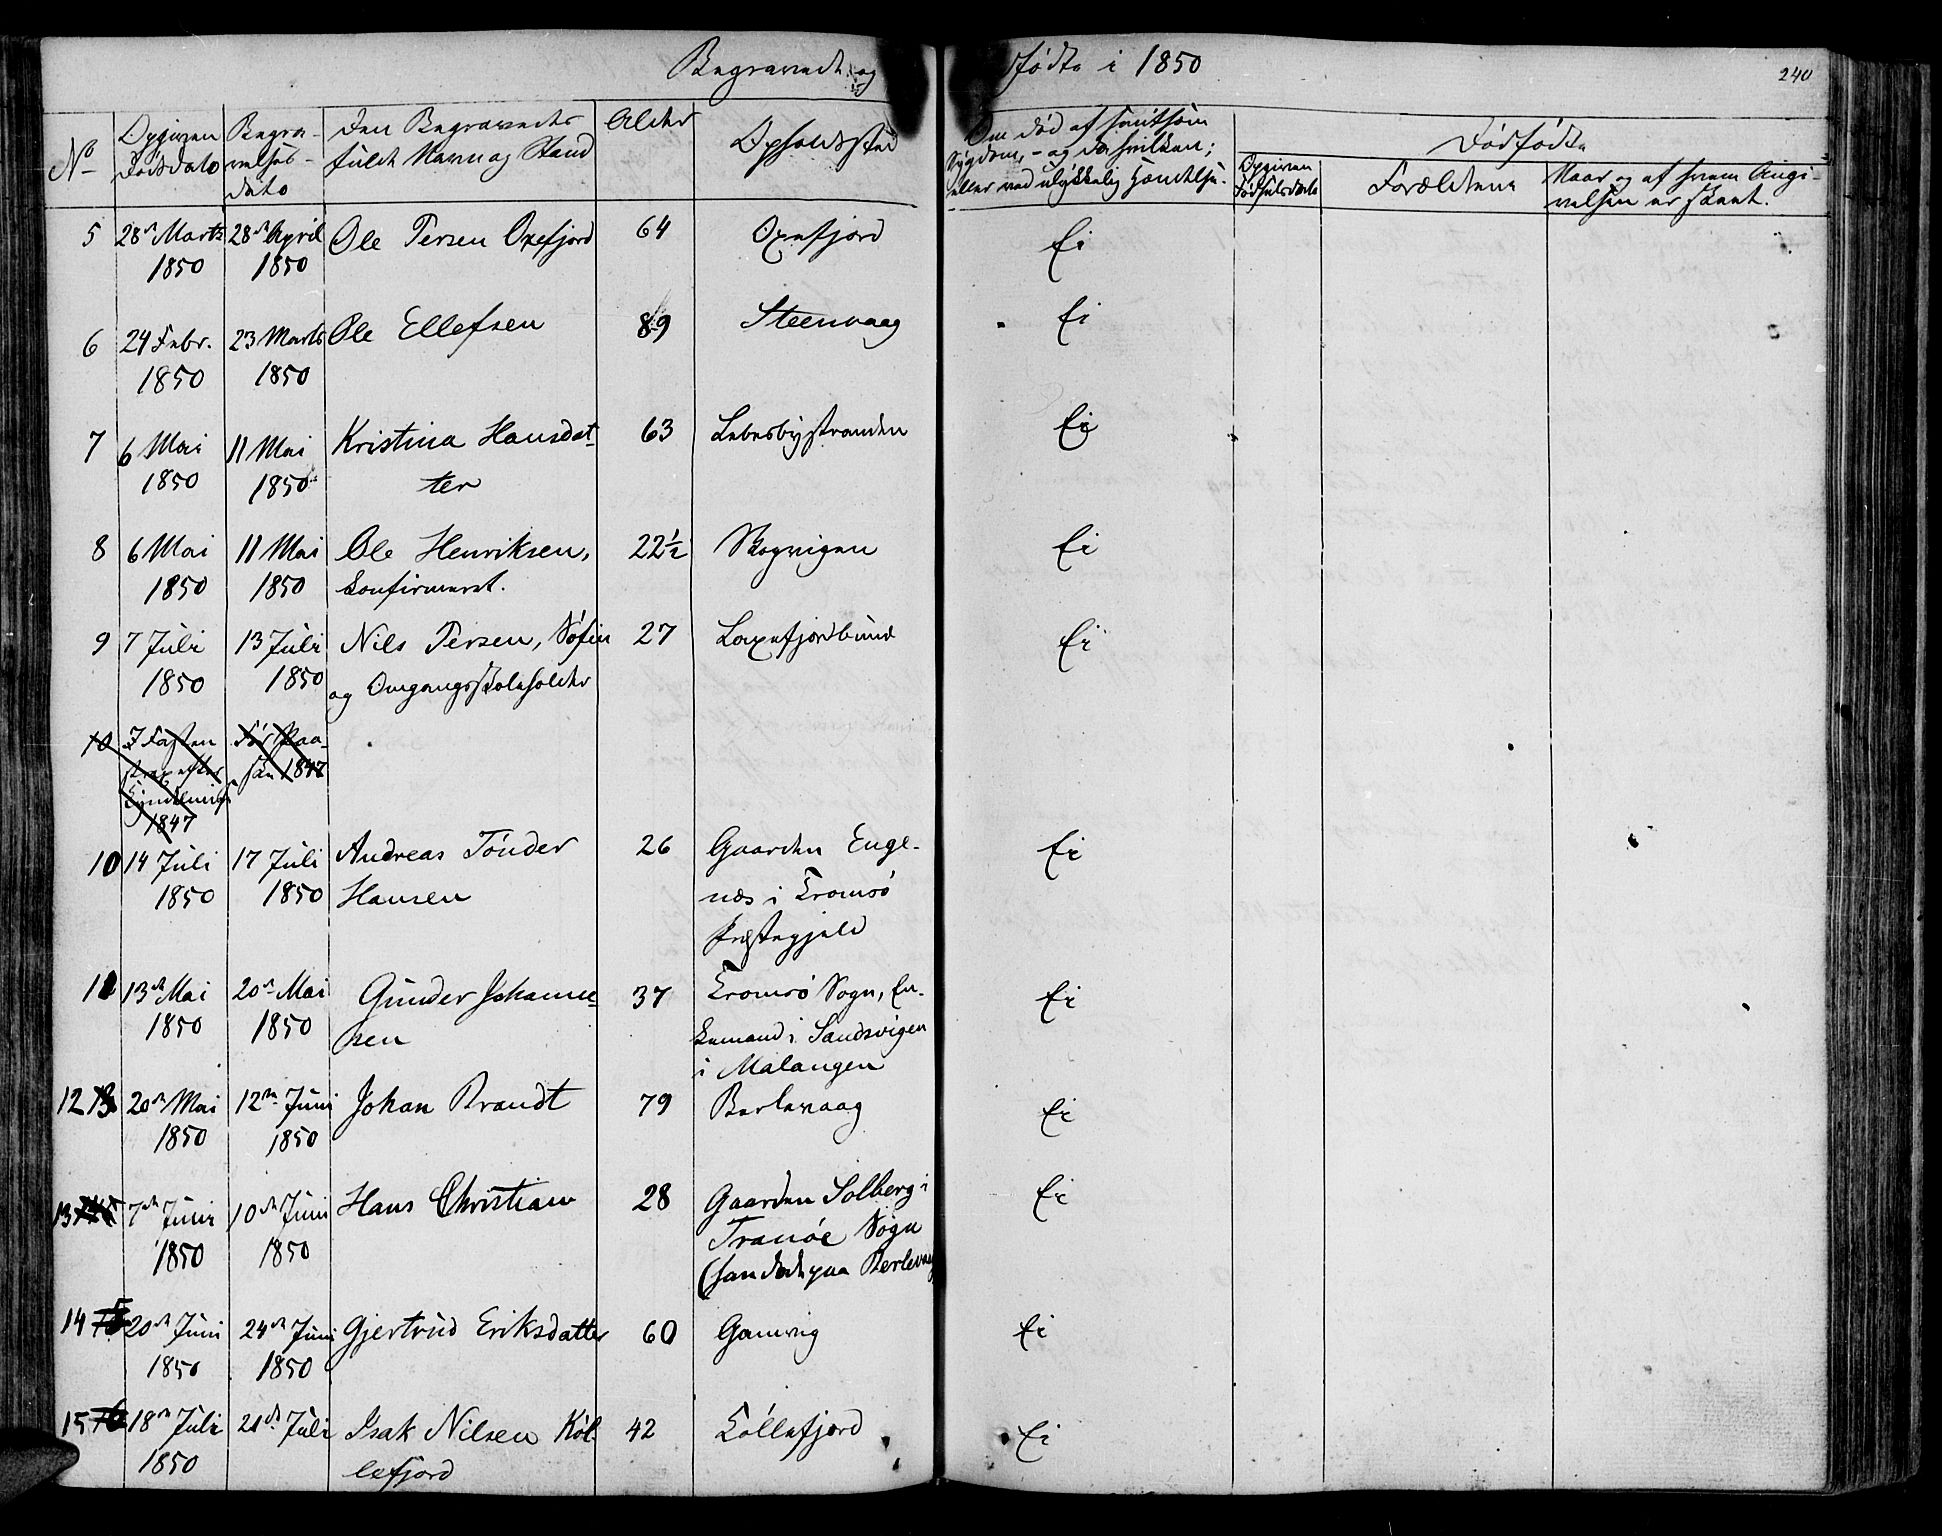 Begravede og fødte i 1850
240
No
Opgiven Dødsdato
Begravelses-dato
Den Begravedes fulde Navn og Stand
Alder
Opholdssted
Om død af smitsom Sygdom, - og da hvilken; eller ved ulykkelig Hændelse.
Dødfødte
Opgiven Fødselsdato
Forældrene
Naar og af hvem Angivelsen er skeet.
5 28de Marts 1850 28de April 1850 Ole Persen Oxefjord 64 Oxefjord Ei
6 24 Febr. 1850 23 Marts 1850 Ole Ellefsen 89 Steenvaag Ei
7 6 Mai 1850 11 Mai 1850 Kristina Hansdatter 63 Lebesbystranden Ei
8 6 Mai 1850 11 Mai 1850 Ole Henriksen, Konfirmeret. 22½ Skogvigen Ei
9 7 Juli 1850 13 Juli 1850 Nils Persen, Søfin og Omgangsskoleholder 27 Laxefjordbund Ei
10 I Fasten strax efter Kyndelmis 1847 Før Paaske 1847
10 14 Juli 1850 17 Juli 1850 Andreas Tønder Hansen 26 Gaarden Engenæs i Tromsø Præstegjeld Ei
11 13de Mai 1850 20de Mai 1850 Gunder Johannesen 37 Tromsø Sogn, Enkemand i Sandsvigen i Malangen Ei
12 20de Mai 1850 12te Juni 1850 Johan Brandt 79 Berlevaag Ei
13 7de Juni 1850 10de Juni 1850 Hans Christian 28 Gaarden Solberg i Tranöe Sogn (han døde paa Berlevaag Ei
14 20de Juni 1850 24de Juni 1850 Gjertrud Eriksdatter 60 Gamvig Ei
15 18de Juli 1850 21de Juli Isak Nilsen Køllefjord 42 Køllefjord Ei